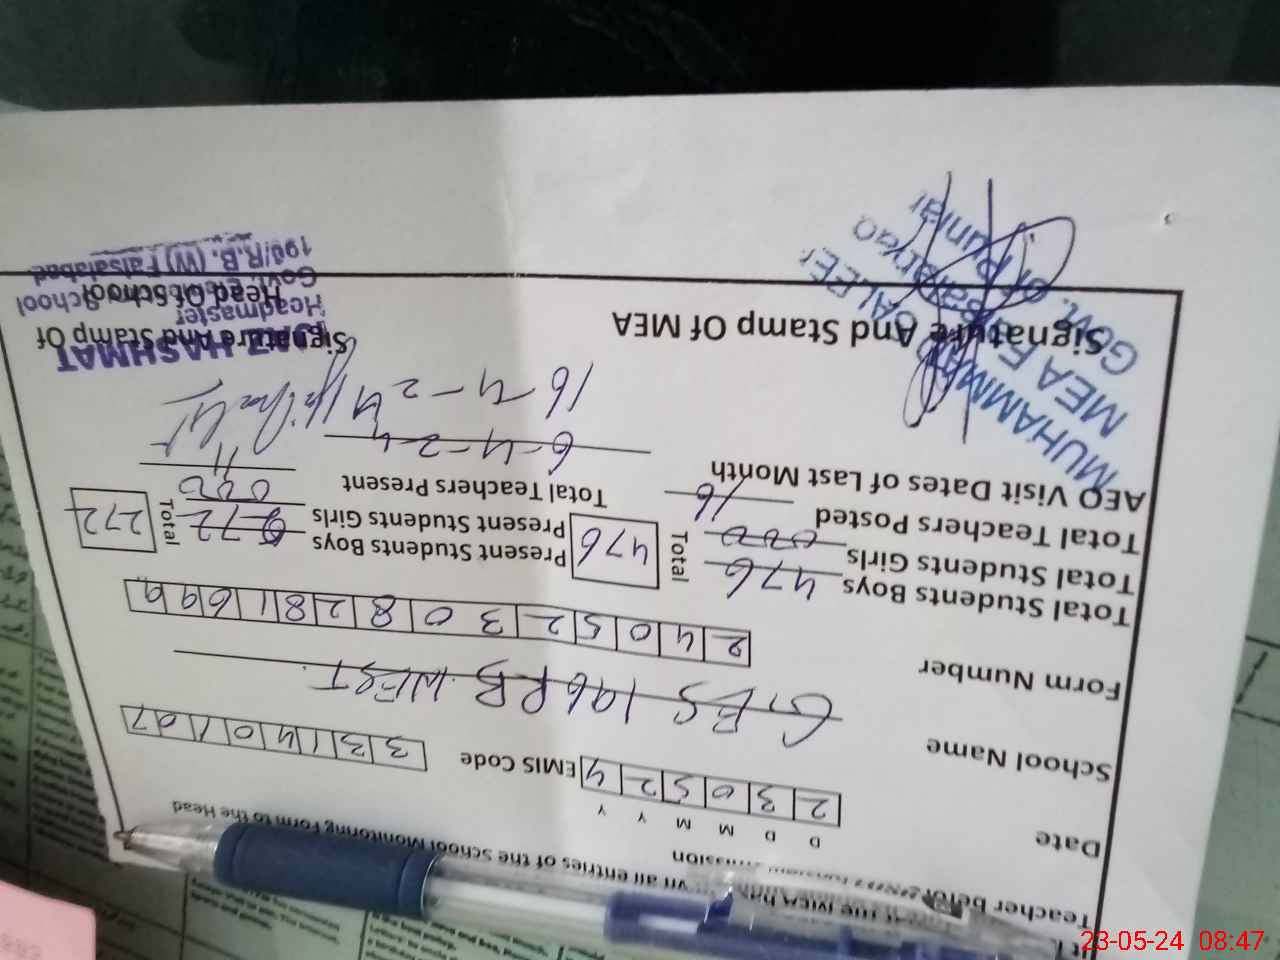 Teacher before
all entries of the School Monitoring Form to the Head
D D M M Y Y
Date 2 3 0 5 2 4 EMIS Code 3 3 1 4 0 1 0 7
School Name GES 196 RB WEST
Form Number 2 4 0 5 2 3 0 8 2 8 1 6 9 9
Total Students Boys 476 Total 476 Present Students Boys 272 Total 272
Total Students Girls 000 Present Students Girls 000
Total Teachers Posted 16 Total Teachers Present 11
AEO Visit Dates of Last Month 6-4-24
16-4-24
Signature And Stamp Of MEA
Signature And Stamp Of
Head Of School
MUHAMMAD
MEA
Govt. Of Punjab
HASHMAT
Headmaster
Govt. School
196/R.B. (W) Faisalabad
23-05-24 08:47